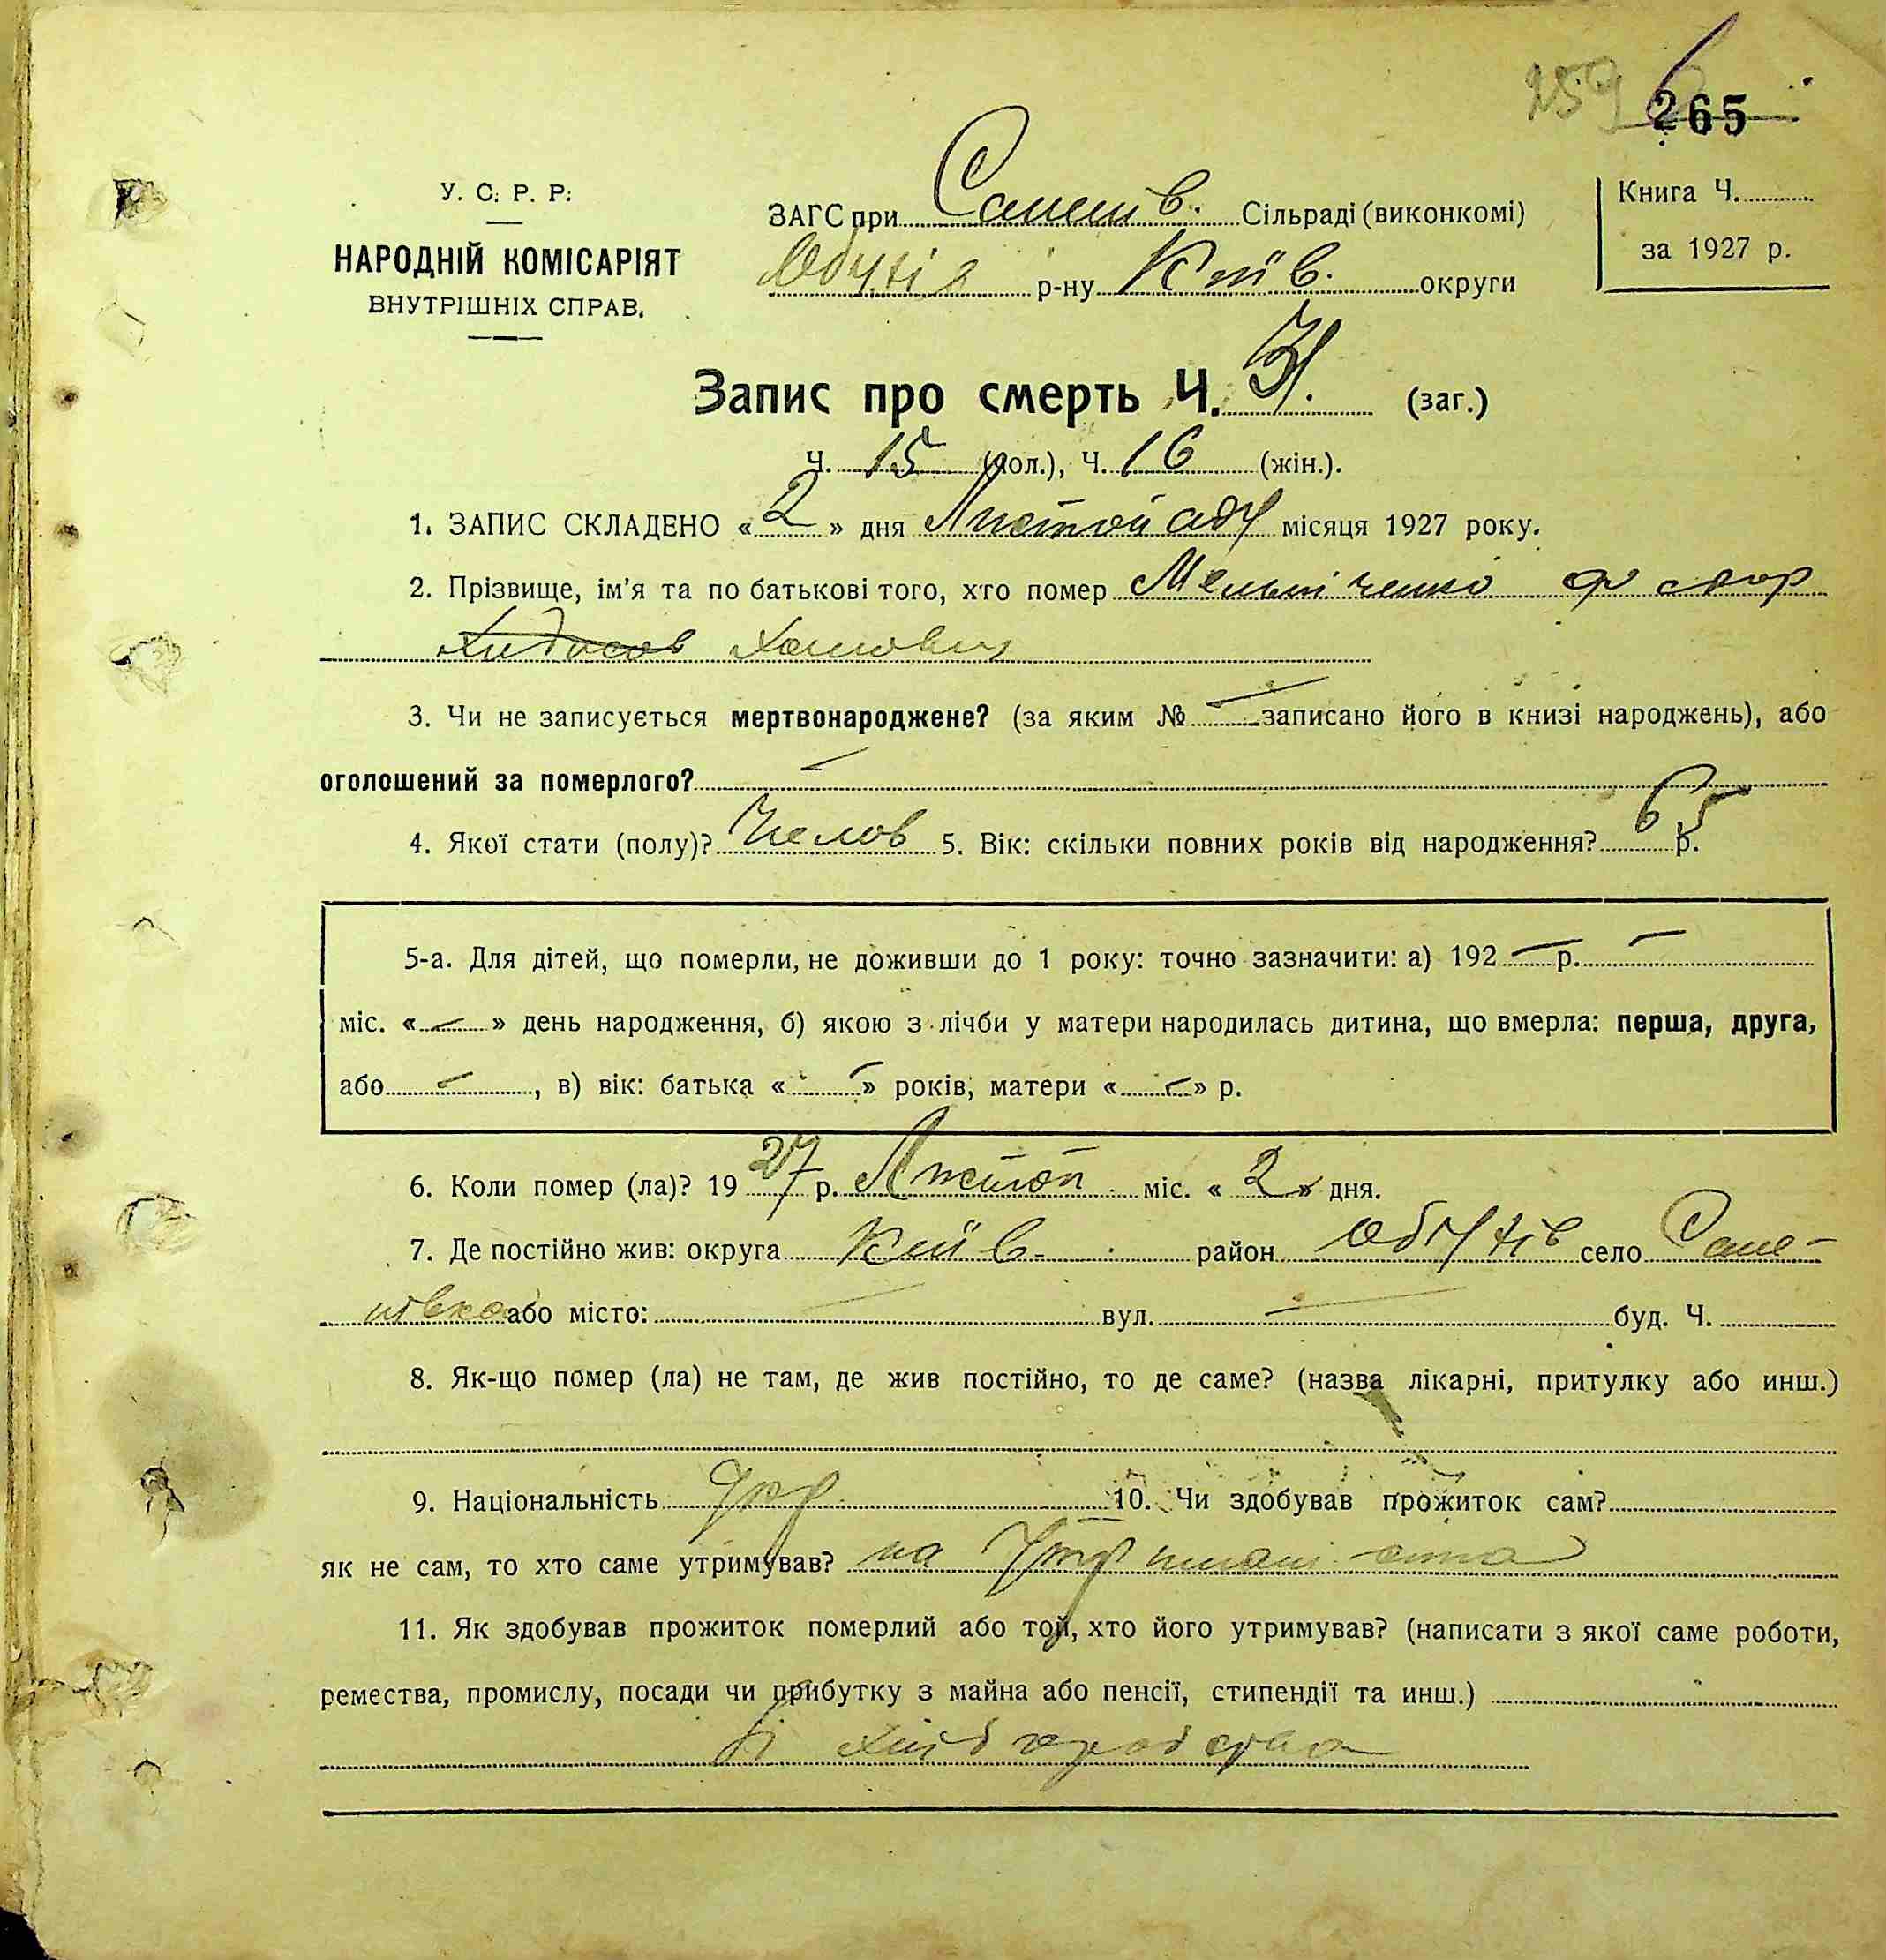 265
У. С. Р. Р.
НАРОДНІЙ КОМІСАРІЯТ
ВНУТРІШНІХ СПРАВ.
ЗАГС при Сільраді (виконкомі)
р-ну Київ. округи
Книга Ч.
за 1927 р.
Запис про смерть Ч. 31. (заг.)
Ч. 15 (чол.), Ч. 16 (жін.).
1. ЗАПИС СКЛАДЕНО « 2 » дня Листопаду місяця 1927 року.
2. Прізвище, ім'я та по батькові того, хто помер Мельніченко Федор
Хомович
3. Чи не записується мертвонароджене? (за яким № — записано його в книзі народжень), або
оголошений за померлого? —
4. Якої стати (полу)? Челов 5. Вік: скільки повних років від народження? 65 р.
5-а. Для дітей, що померли, не доживши до 1 року: точно зазначити: а) 192 — р. —
міс. « — » день народження, б) якою з лічби у матери народилась дитина, що вмерла: перша, друга,
або — , в) вік: батька « — » років, матери « — » р.
6. Коли помер (ла)? 19 27 р. Листоп. міс. « 2 » дня.
7. Де постійно жив: округа Київ. район Обухів село
або місто: — вул. — буд. Ч.
8. Як-що помер (ла) не там, де жив постійно, то де саме? (назва лікарні, притулку або инш.)
9. Національність Укр 10. Чи здобував прожиток сам?
як не сам, то хто саме утримував? на утриманні сина
11. Як здобував прожиток померлий або той, хто його утримував? (написати з якої саме роботи,
ремества, промислу, посади чи прибутку з майна або пенсії, стипендії та инш.)
хліборобства